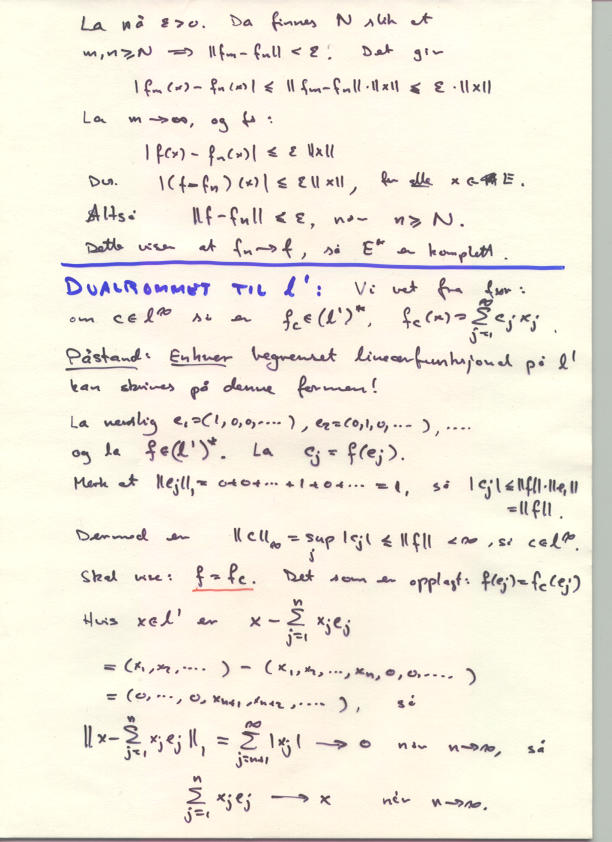 La nå ε>0. Da finnes N slik at
m,n≥N ⟹ ||fm-fn|| < ε. Det gir
|fm(x)-fn(x)| ≤ ||fm-fn||·||x|| ≤ ε·||x||
La m→∞, og få:
|f(x)-fn(x)| ≤ ε||x||
Dvs. |(f-fn)(x)| ≤ ε||x||, for alle x∈E.
Altså ||f-fn|| ≤ ε, når n≥N.
Dette viser at fn→f, så E* er komplett.
DUALROMMET TIL l¹: Vi vet fra før:
om c∈l^∞ så er fc∈(l¹)*, fc(x)=∑_{j=1}^∞ cj xj.
Påstand: Enhver begrenset linearfunksjonal på l¹
kan skrives på denne formen!
La nemlig e₁=(1,0,0,....), e₂=(0,1,0,...), ....
og la f∈(l¹)*. La cj = f(ej).
Merk at ||ej||₁ = 0+0+...+1+0+... = 1, så |cj| ≤ ||f||·||ej||
= ||f||.
Dermed er ||c||∞ = sup_j |cj| ≤ ||f|| < ∞, så c∈l^∞.
Skal vise: f = fc. Det som er opplagt: f(ej)=fc(ej)
Hvis x∈l¹ er x - ∑_{j=1}^n xjej
= (x₁,x₂,....) - (x₁,x₂,...,xn,0,0,....)
= (0,...,0,xn+1,xn+2,....), så
||x-∑_{j=1}^n xjej||₁ = ∑_{j=n+1}^∞ |xj| → 0 når n→∞, så
∑_{j=1}^n xjej → x når n→∞.